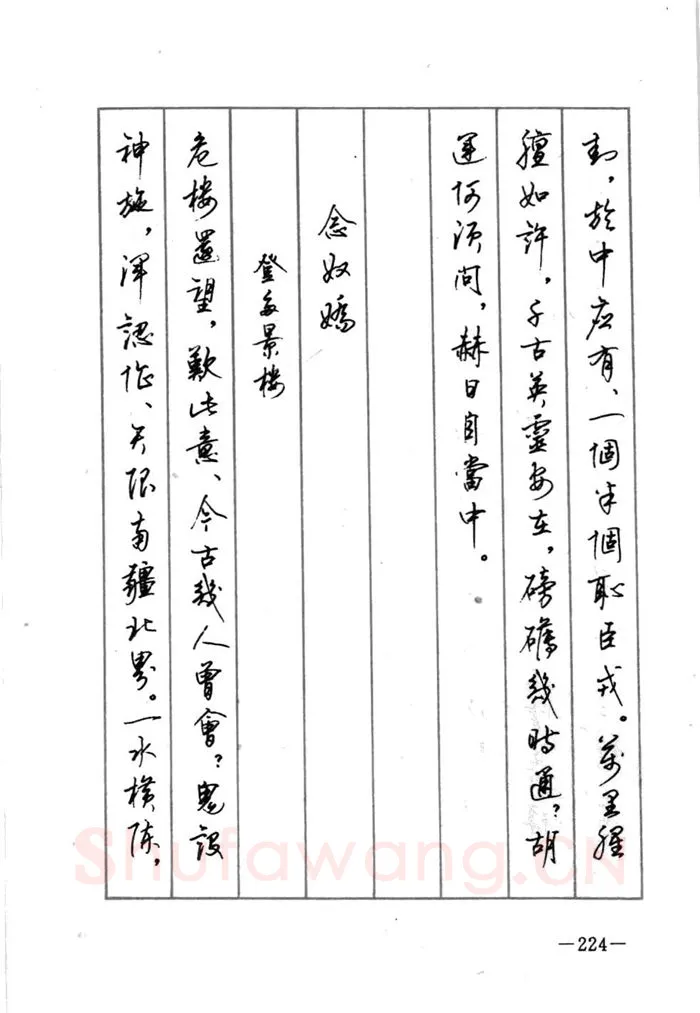 封，於中应有、一個半個恥臣戎。萬里腥
膻如許，千古英靈安在，磅礴幾時通？胡
運何須問，赫日自當中。
念奴嬌
登多景楼
危楼還望，歎此意、今古幾人曾會？鬼設
神施，渾認作、天限南疆北界。一水横陳，
—224—
Shufawang.CN